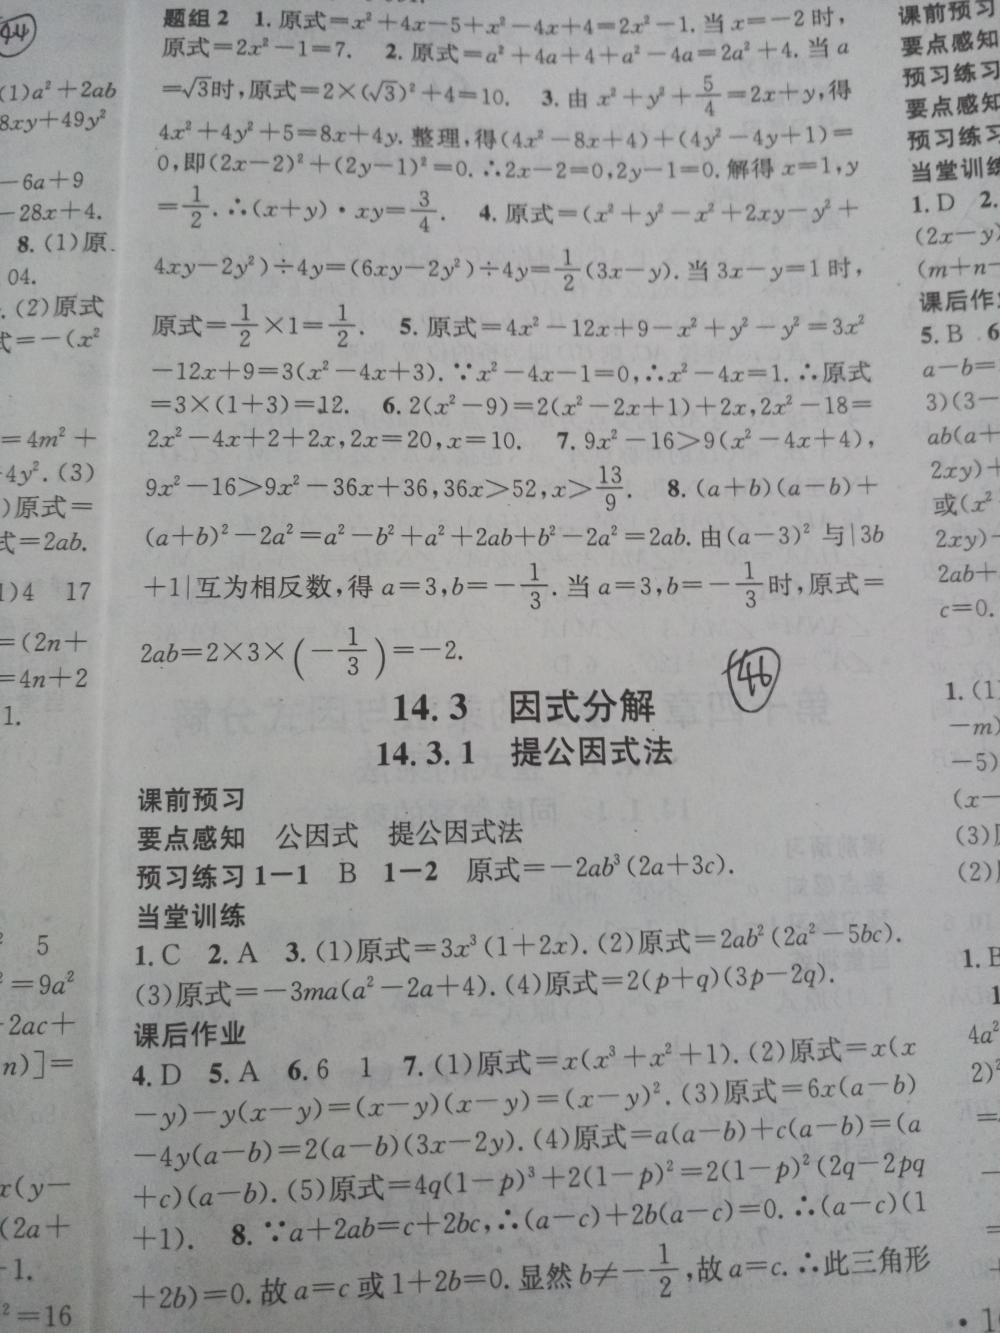 44
(1)a²+2ab
8xy+49y²
-6a+9
-28x+4.
8. (1)原
04.
. (2)原式
式=-(x²
=4m²+
4y². (3)
)原式=
式=2ab.
1)4 17
=(2n+
=4n+2
1.
5
²=9a²
2ac+
n)]=
x(y-
(2a+
-1.
²=16
题组2 1. 原式=x²+4x-5+x²-4x+4=2x²-1. 当x=-2时,
原式=2x²-1=7. 2. 原式=a²+4a+4+a²-4a=2a²+4. 当a
=√3时,原式=2×(√3)²+4=10. 3. 由x²+y²+5/4=2x+y,得
4x²+4y²+5=8x+4y. 整理,得(4x²-8x+4)+(4y²-4y+1)=
0,即(2x-2)²+(2y-1)²=0. ∴2x-2=0,2y-1=0. 解得x=1,y
=1/2. ∴(x+y)·xy=3/4. 4. 原式=(x²+y²-x²+2xy-y²+
4xy-2y²)÷4y=(6xy-2y²)÷4y=1/2(3x-y). 当3x-y=1时,
原式=1/2×1=1/2. 5. 原式=4x²-12x+9-x²+y²-y²=3x²
-12x+9=3(x²-4x+3). ∵x²-4x-1=0,∴x²-4x=1. ∴原式
=3×(1+3)=12. 6. 2(x²-9)=2(x²-2x+1)+2x,2x²-18=
2x²-4x+2+2x,2x=20,x=10. 7. 9x²-16>9(x²-4x+4),
9x²-16>9x²-36x+36,36x>52,x>13/9. 8. (a+b)(a-b)+
(a+b)²-2a²=a²-b²+a²+2ab+b²-2a²=2ab. 由(a-3)²与|3b
+1|互为相反数,得a=3,b=-1/3. 当a=3,b=-1/3时,原式=
2ab=2×3×(-1/3)=-2.
46
14.3 因式分解
14.3.1 提公因式法
课前预习
要点感知 公因式 提公因式法
预习练习1-1 B 1-2 原式=-2ab³(2a+3c).
当堂训练
1. C 2. A 3. (1)原式=3x³(1+2x). (2)原式=2ab²(2a²-5bc).
(3)原式=-3ma(a²-2a+4). (4)原式=2(p+q)(3p-2q).
课后作业
4. D 5. A 6. 6 1 7. (1)原式=x(x³+x²+1). (2)原式=x(x
-y)-y(x-y)=(x-y)(x-y)=(x-y)². (3)原式=6x(a-b)
-4y(a-b)=2(a-b)(3x-2y). (4)原式=a(a-b)+c(a-b)=(a
+c)(a-b). (5)原式=4q(1-p)³+2(1-p)²=2(1-p)²(2q-2pq
+1). 8. ∵a+2ab=c+2bc,∴(a-c)+2b(a-c)=0. ∴(a-c)(1
+2b)=0. 故a=c或1+2b=0. 显然b≠-1/2,故a=c. ∴此三角形
课前预习
要点感知
预习练习
要点感知
预习练习
当堂训练
1. D 2.
(2x-y)
(m+n-
课后作业
5. B 6
a-b=
3)(3-
ab(a+
2xy)+
或(x²
2xy)-
2ab+
c=0.
1. (1)
-m)
-5)
(x-
(3)
(2)
1. B
4a²
2)²